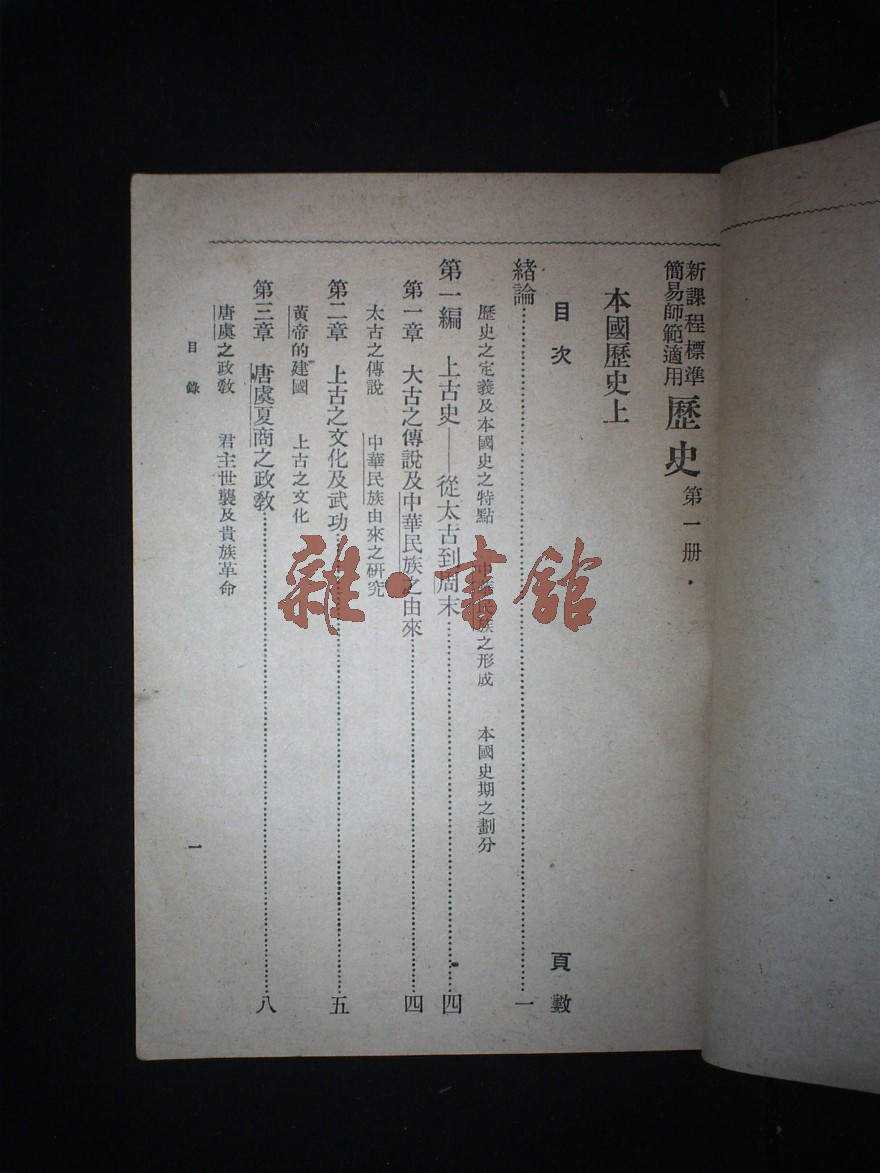 新課程標準
簡易師範適用
歷史 第一册
本國歷史上
目次 頁數
緒論……一
歷史之定義及本國史之特點 中華民族之形成 本國史期之劃分
第一編 上古史——從太古到周末……四
第一章 大古之傳說及中華民族之由來……四
太古之傳說 中華民族由來之研究
第二章 上古之文化及武功……五
黃帝的建國 上古之文化
第三章 唐虞夏商之政敎……八
唐虞之政敎 君主世襲及貴族革命
目錄 一
雜·書館